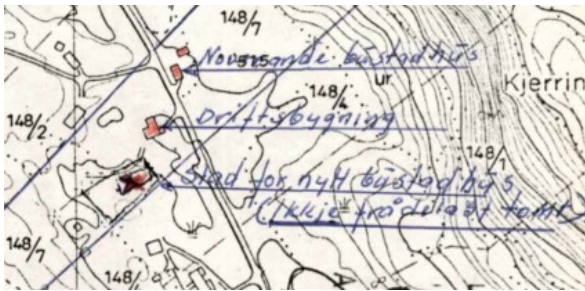 148/7
Noverande bustadhus
515
148/4
ur
Kjerrin
Driftsbygning
148/2
148/1
Stad for nytt bustadhus
(Ikkje frå tomt
148/7
148/